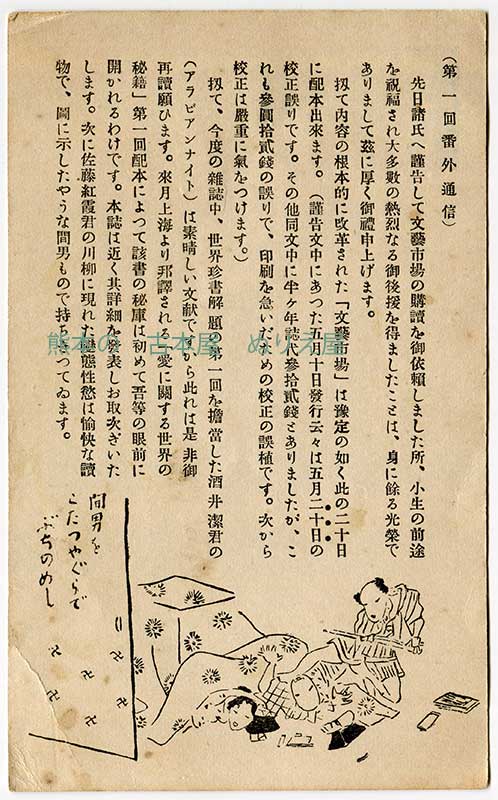 （第一回番外通信）
先日諸氏へ謹告して文藝市場の購讀を御依賴しました所、小生の前途
を祝福され大多數の熱烈なる御後援を得ましたことは、身に餘る光榮で
ありまして玆に厚く御禮申上げます。
扨て內容の根本的に改革された「文藝市場」は豫定の如く此の二十日
に配本出來ます。（謹告文中にあつた五月十日發行云々は五月二十日の
校正誤りです。その他同文中に半ヶ年誌代參拾貳錢とありましたが、こ
れも參圓拾貳錢の誤りで、印刷を急いだための校正の誤植です。次から
校正は嚴重に氣をつけます。）
扨て、今度の雜誌中、世界珍書解題第一回を擔當した酒井潔君の
（アラビアンナイト）は素晴しい文献ですから此れは是非御
再讀願ひます。來月上海より邦譯される性愛に關する世界の
秘籍」第一回配本によつて該書の秘庫は初めて吾等の眼前に
開かれるわけです。本誌は近く其詳細を發表しお取次ぎいた
します。次に佐藤紅霞君の川柳に現れた變態性慾は愉快な讀
物で、圖に示したやうな間男もので持ち切つてゐます。
間男を
こたつやぐらで
ぶちのめし
熊本の 古本屋 ぬりえ屋